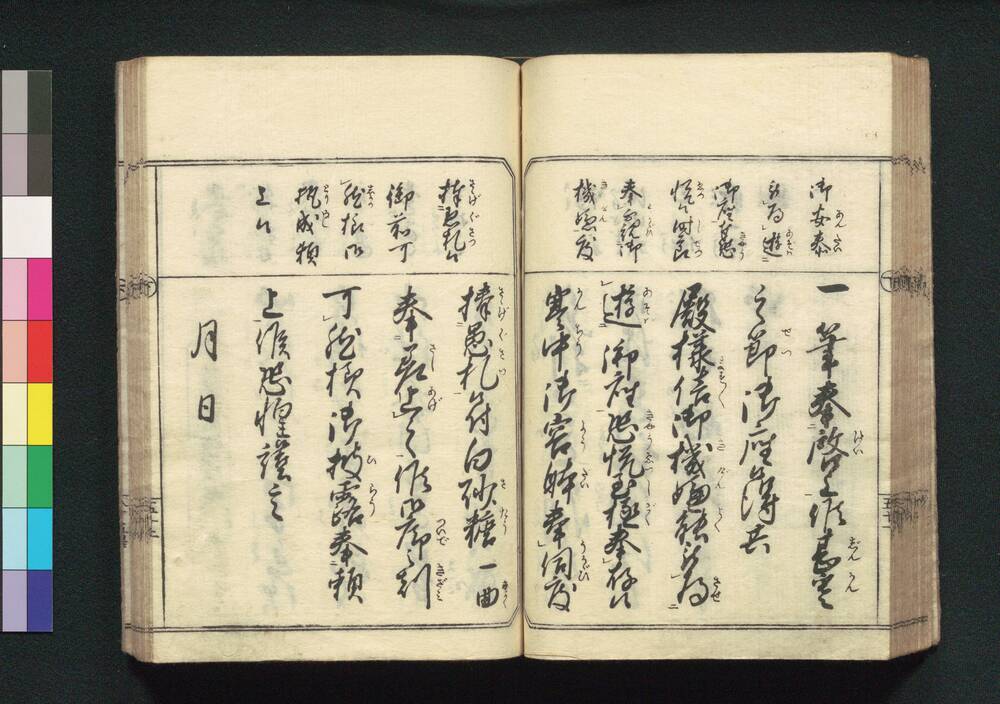 御安泰
被為遊
御座恐
奉窺御
機嫌度
一筆奉啓上候甚寒
之節御座候得共
殿様倍御機嫌能被為
遊御座恐悦至極奉存候
寒中御容躰奉伺度
捧愚札候
御前可
然様御
執成頼
上候
捧愚札并白砂糖一曲
奉差上之候御序之刻
可然様御披露奉頼
上候恐惶謹言
月日